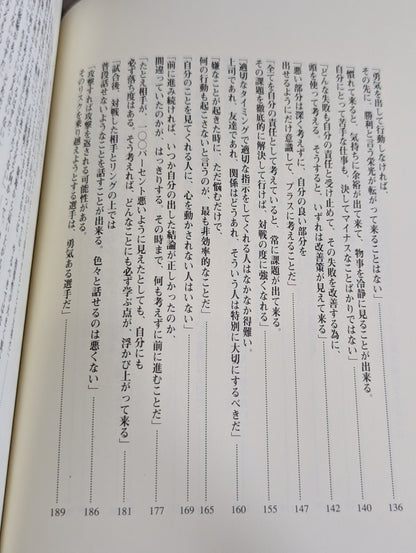 「勇気を出して行動しなければ、
その先に、勝利と言う栄光が転がって来ることはない」 136
「慣れて来ると、気持ちに余裕が出て来て、物事を冷静に見ることが出来る。
自分にとって苦手な仕事も、決してマイナスなことばかりではない」 140
「どんな失敗も自分の責任と受け止めて、その失敗を改善する為に、
頭を使って考える。そうすると、いずれは改善策が見えて来る」 142
「悪い部分は深く考えずに、自分の良い部分を
出せるようにだけ意識して、プラスに考えること」 147
「全てを自分の責任として考えていると、常に課題が出て来る。
その課題を徹底的に解決して行けば、対戦の度に強くなれる」 155
「適切なタイミングで適切な指示をしてくれる人はなかなか得難い。
上司であれ、友達であれ、関係はどうあれ、そういう人は特別に大切にするべきだ」 160
「嫌なことが起きた時に、ただ悩むだけで、
何の行動も起こさないと言うのが、最も非効率的なことだ」 165
「自分のことを見てくれる人に、心を動かされない人はいない」 169
「前に進み続ければ、いつか自分の出した結論が正しかったのか、
間違っていたのかが、はっきりする。その時まで、何も考えずに前に進むことだ」 177
「たとえ相手が、一〇〇パーセント悪いように見えたとしても、自分にも
必ず落ち度はある。そう考えれば、どんなことにも必ず学ぶ点が、浮かび上がって来る」 181
「試合後、対戦した相手とリングの上では
普段話せないようなことを話すことが出来る。色々と話せるのは悪くない」 186
「攻撃すれば攻撃を返される可能性がある。
そのリスクを乗り越えようとする選手は、勇気ある選手だ」 189